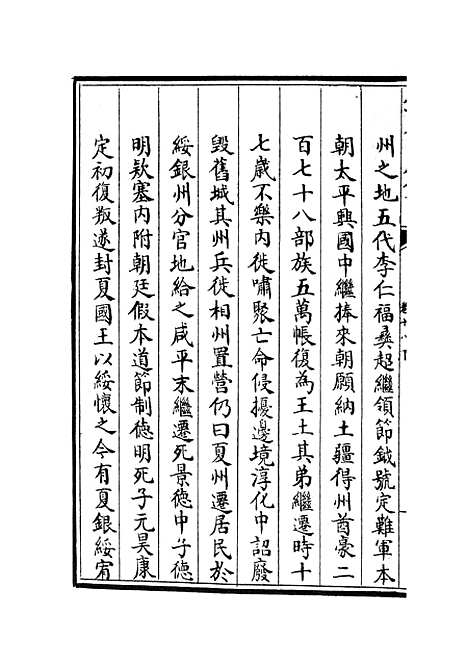 州之地五代李仁福彝超繼領節鉞號定難軍本
朝太平興國中繼捧來朝願納土疆得州酋豪二
百七十八部族五萬帳復為王土其弟繼遷時十
七歲不樂內徙嘯聚亡命侵擾邊境淳化中詔廢
毀舊城其州兵徙相州置營仍曰夏州遷居民於
綏銀州分官地給之咸平末繼遷死景德中子德
明欵塞內附朝廷假本道節制德明死子元昊康
定初復叛遂封夏國王以綏懷之今有夏銀綏宥